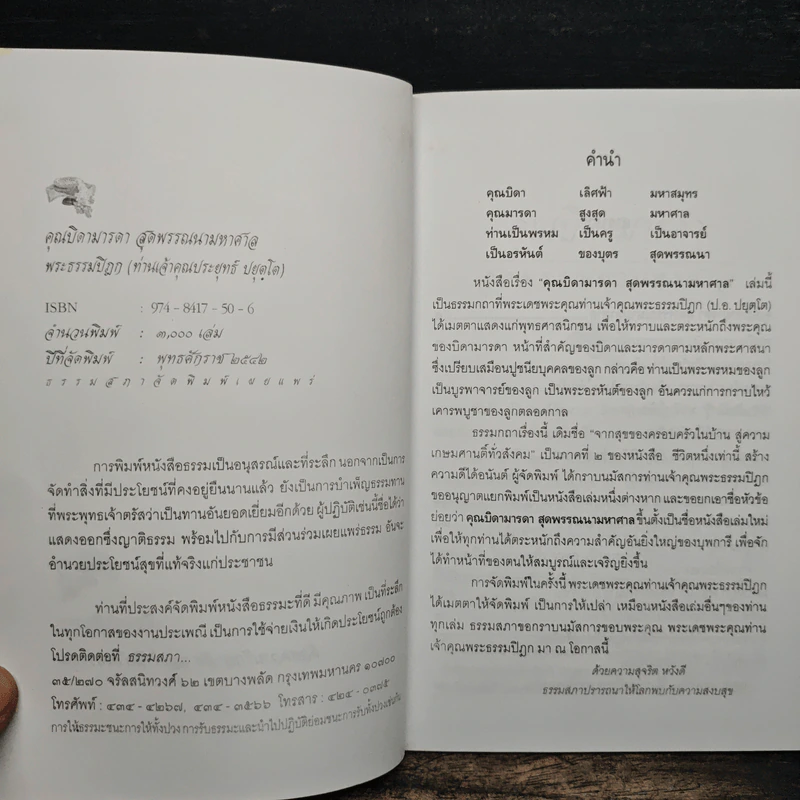 คุณบิดามารดา สุดพรรณนามหาศาล
พระธรรมปิฎก (ท่านเจ้าคุณประยุทธ์ ปยุตฺโต)
ISBN : 974 - 8417 - 50 - 6
จำนวนพิมพ์ : ๓,๐๐๐ เล่ม
ปีที่จัดพิมพ์ : พุทธศักราช ๒๕๔๒
ธรรมสภาจัดพิมพ์เผยแพร่
การพิมพ์หนังสือธรรมเป็นอนุสรณ์และที่ระลึก นอกจากเป็นการ
จัดทำสิ่งที่มีประโยชน์ที่คงอยู่ยืนนานแล้ว ยังเป็นการบำเพ็ญธรรมทาน
ที่พระพุทธเจ้าตรัสว่าเป็นทานอันยอดเยี่ยมอีกด้วย ผู้ปฏิบัติเช่นนี้ชื่อได้ว่า
แสดงออกซึ่งญาติธรรม พร้อมไปกับการมีส่วนร่วมเผยแพร่ธรรม อันจะ
อำนวยประโยชน์สุขที่แท้จริงแก่ประชาชน
ท่านที่ประสงค์จัดพิมพ์หนังสือธรรมะที่ดี มีคุณภาพ เป็นที่ระลึก
ในทุกโอกาสของงานประเพณี เป็นการใช้จ่ายเงินให้เกิดประโยชน์ถูกต้อง
โปรดติดต่อที่ ธรรมสภา...
๓๕/๒๗๐ จรัลสนิทวงศ์ ๖๒ เขตบางพลัด กรุงเทพมหานคร ๑๐๗๐๐
โทรศัพท์ : ๔๓๔ - ๔๒๖๗, ๔๓๔ - ๓๕๖๖ โทรสาร : ๔๒๔ - ๐๓๗๕
การให้ธรรมะชนะการให้ทั้งปวง การรับธรรมะและนำไปปฏิบัติย่อมชนะการรับทั้งปวงเช่นกัน
คำนำ
คุณบิดา เลิศฟ้า มหาสมุทร
คุณมารดา สูงสุด มหาศาล
ท่านเป็นพรหม เป็นครู เป็นอาจารย์
เป็นอรหันต์ ของบุตร สุดพรรณนา
หนังสือเรื่อง “คุณบิดามารดา สุดพรรณนามหาศาล” เล่มนี้
เป็นธรรมกถาที่พระเดชพระคุณท่านเจ้าคุณพระธรรมปิฎก (ป.อ. ปยุตฺโต)
ได้เมตตาแสดงแก่พุทธศาสนิกชน เพื่อให้ทราบและตระหนักถึงพระคุณ
ของบิดามารดา หน้าที่สำคัญของบิดาและมารดาตามหลักพระศาสนา
ซึ่งเปรียบเสมือนปูชนียบุคคลของลูก กล่าวคือ ท่านเป็นพระพรหมของลูก
เป็นบูรพาจารย์ของลูก เป็นพระอรหันต์ของลูก อันควรแก่การกราบไหว้
เคารพบูชาของลูกตลอดกาล
ธรรมกถาเรื่องนี้ เดิมชื่อ “จากสุขของครอบครัวในบ้าน สู่ความ
เกษมศานติ์ทั่วสังคม” เป็นภาคที่ ๒ ของหนังสือ ชีวิตหนึ่งเท่านี้ สร้าง
ความดีได้อนันต์ ผู้จัดพิมพ์ ได้กราบนมัสการท่านเจ้าคุณพระธรรมปิฎก
ขออนุญาตแยกพิมพ์เป็นหนังสือเล่มหนึ่งต่างหาก และขอยกเอาชื่อหัวข้อ
ย่อยว่า คุณบิดามารดา สุดพรรณนามหาศาล ขึ้นตั้งเป็นชื่อหนังสือเล่มใหม่
เพื่อให้ทุกท่านได้ตระหนักถึงความสำคัญอันยิ่งใหญ่ของบุพการี เพื่อจัก
ได้ทำหน้าที่ของตนให้สมบูรณ์และเจริญยิ่งขึ้น
การจัดพิมพ์ในครั้งนี้ พระเดชพระคุณท่านเจ้าคุณพระธรรมปิฎก
ได้เมตตาให้จัดพิมพ์ เป็นการให้เปล่า เหมือนหนังสือเล่มอื่นๆของท่าน
ทุกเล่ม ธรรมสภาขอกราบนมัสการขอบพระคุณ พระเดชพระคุณท่าน
เจ้าคุณพระธรรมปิฎก มา ณ โอกาสนี้
ด้วยความสุจริต หวังดี
ธรรมสภาปรารถนาให้โลกพบกับความสงบสุข